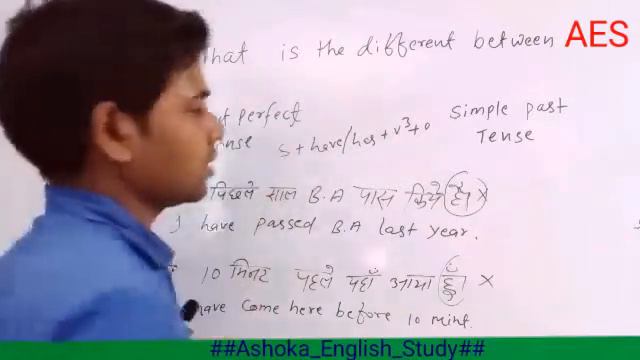 what is the different between AES
perfect
s + have/has + v³ + o
Simple past
Tense
पिछले साल B.A पास किये है। ×
I have passed B.A last year.
10 मिनट पहले यहाँ आया हूँ। ×
have come here before 10 mint.
##Ashoka_English_Study##